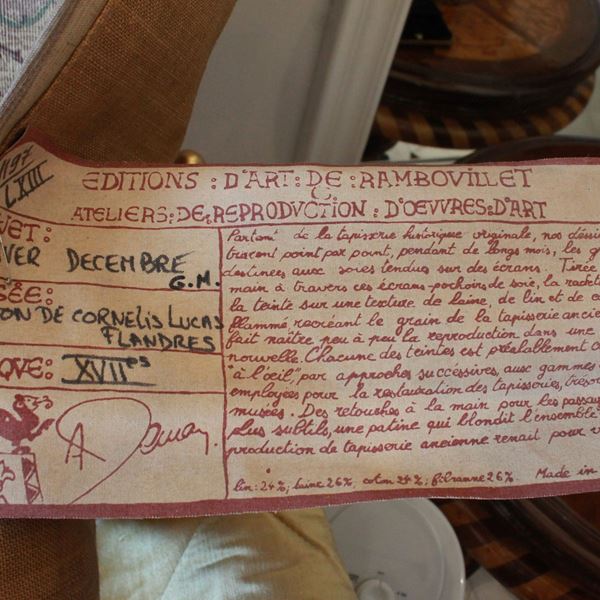 1197
LXIII
EDITIONS : D'ART : DE : RAMBOVILLET
ATELIERS : DE : REPRODVCTION : D'OEVVRES : D'ART
ET:
VER DECEMBRE
G.M.
SÉE:
ON DE CORNELIS LUCAS
FLANDRES
QVE: XVIIes
Partant de la tapisserie historique originale, nos dessi
tracent point par point, pendant de longs mois, les g
destinées aux soies tendues sur des écrans. Tirée
main à travers ces écrans-pochoirs de soie, la racl
la teinte sur une texture de laine, de lin et de co
flammé, recréant le grain de la tapisserie ancien
fait naître peu à peu la reproduction dans une
nouvelle. Chacune des teintes est préalablement c
"à l'œil", par approches successives, aux gammes
employées pour la restauration des tapisseries, trésor
musées. Des retouches à la main pour les passag
plus subtils, une patine qui blondit l'ensemble
production de tapisserie ancienne renaît pour v
lin : 24%; laine 26%; coton 24%; fibranne 26%. Made in